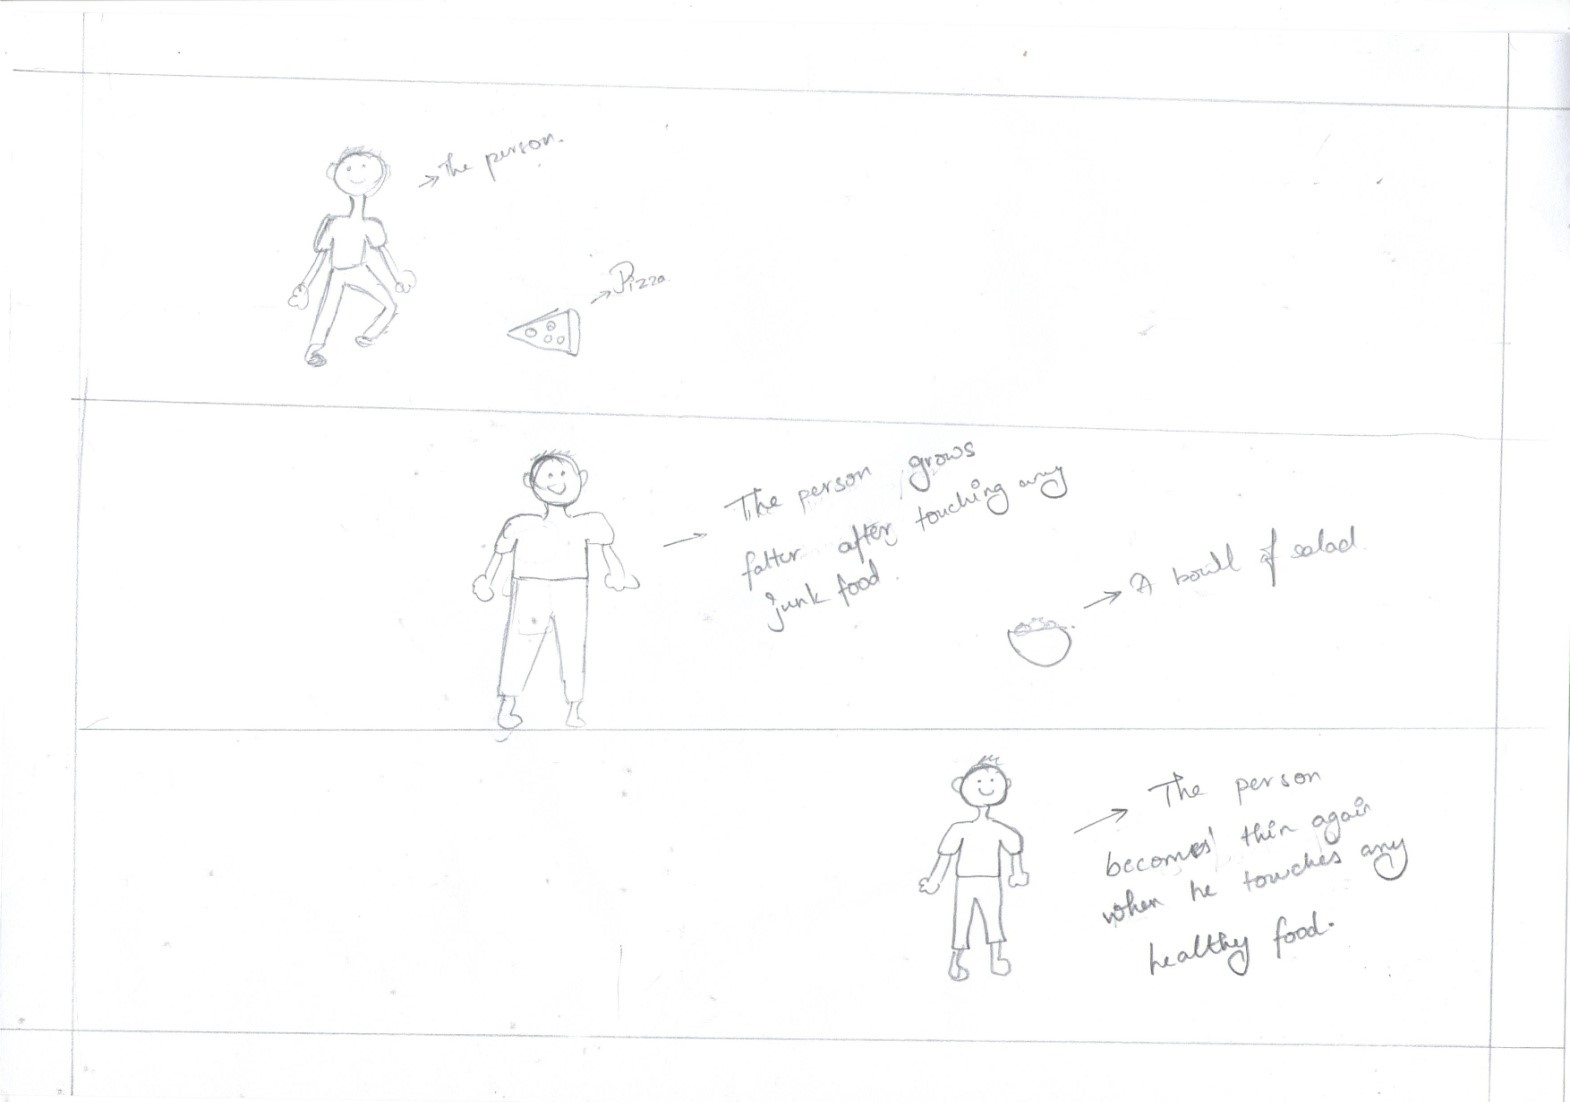 The person.
Pizza
The person grows
fatter after touching any
junk food.
A bowl of salad
The person
becomes thin again
when he touches any
healthy food.